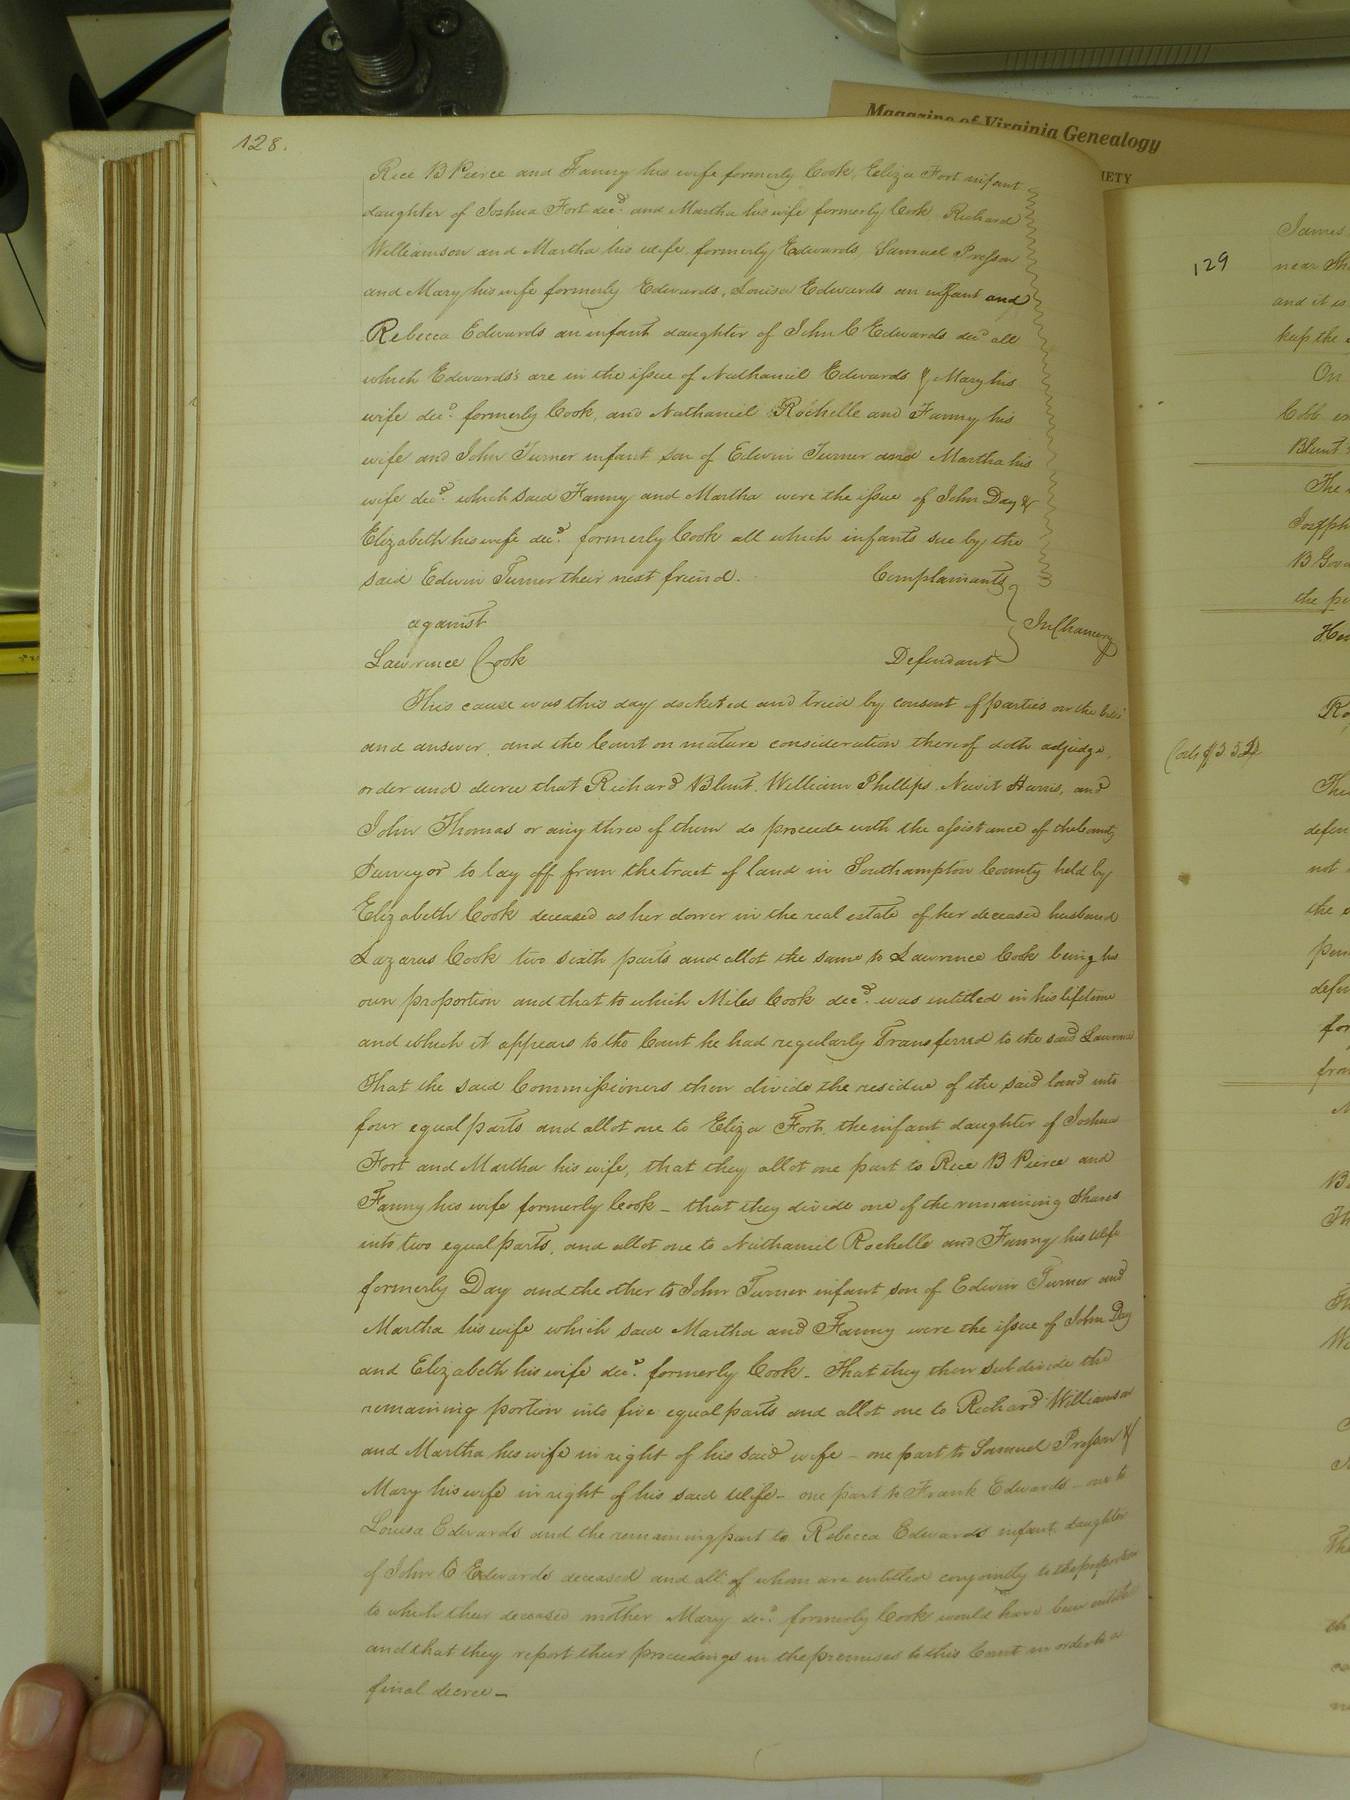 Magazine of Virginia Genealogy
IETY
128.
Rice B Pierce and Fanny his wife formerly Cook, Eliza Fort infant
daughter of Joshua Fort decd. and Martha his wife formerly Cook, Richard
Williamson and Martha his wife formerly Edwards, Samuel Presson
and Mary his wife formerly Edwards, Louisa Edwards an infant and
Rebecca Edwards an infant daughter of John C Edwards decd all
which Edwards's are in the issue of Nathaniel Edwards & Mary his
wife decd. formerly Cook, and Nathaniel Rochelle and Fanny his
wife and John Turner infant son of Edwin Turner and Martha his
wife decd. which said Fanny and Martha were the issue of John Day &
Elizabeth his wife decd. formerly Cook all which infants sue by the
said Edwin Turner their next friend. Complainants
against
In Chancery
Lawrence Cook Defendant
This cause was this day docketed and tried by consent of parties on the bill
and answer, and the Court on mature consideration thereof doth adjudge,
order and decree that Richard Blunt, William Phillips, Newit Harris, and
John Thomas or any three of them do proceede with the assistance of the County
Surveyor to lay off from the tract of land in Southampton County held by
Elizabeth Cook deceased as her dower in the real estate of her deceased husband
Lazarus Cook two sixth parts and allot the same to Lawrence Cook being his
own proportion and that to which Miles Cook decd. was entitled in his lifetime
and which it appears to the Court he had regularly Transferred to the said Lawrence
That the said Commissioners then divide the residue of the said land into
four equal parts and allot one to Eliza Fort, the infant daughter of Joshua
Fort and Martha his wife, that they allot one part to Rice B Pierce and
Fanny his wife formerly Cook - that they divide one of the remaining Shares
into two equal parts, and allot one to Nathaniel Rochelle and Fanny his wife
formerly Day and the other to John Turner infant son of Edwin Turner and
Martha his wife which said Martha and Fanny were the issue of John Day
and Elizabeth his wife decd. formerly Cook - That they then subdivide the
remaining portion into five equal parts and allot one to Richard Williamson
and Martha his wife in right of his said wife - one part to Samuel Presson &
Mary his wife in right of his said wife - one part to Frank Edwards - one to
Louisa Edwards and the remaining part to Rebecca Edwards infant daughter
of John C Edwards deceased and all of whom are entitled conjointly to the proportion
to which their deceased mother Mary decd. formerly Cook would have been entitled
and that they report their proceedings in the premises to this Court in order to a
final decree -
129
James
near
and it is
keep the
On
Cobb
Blunt
The
Joseph
B
the
defen
not
the
defen
for
from